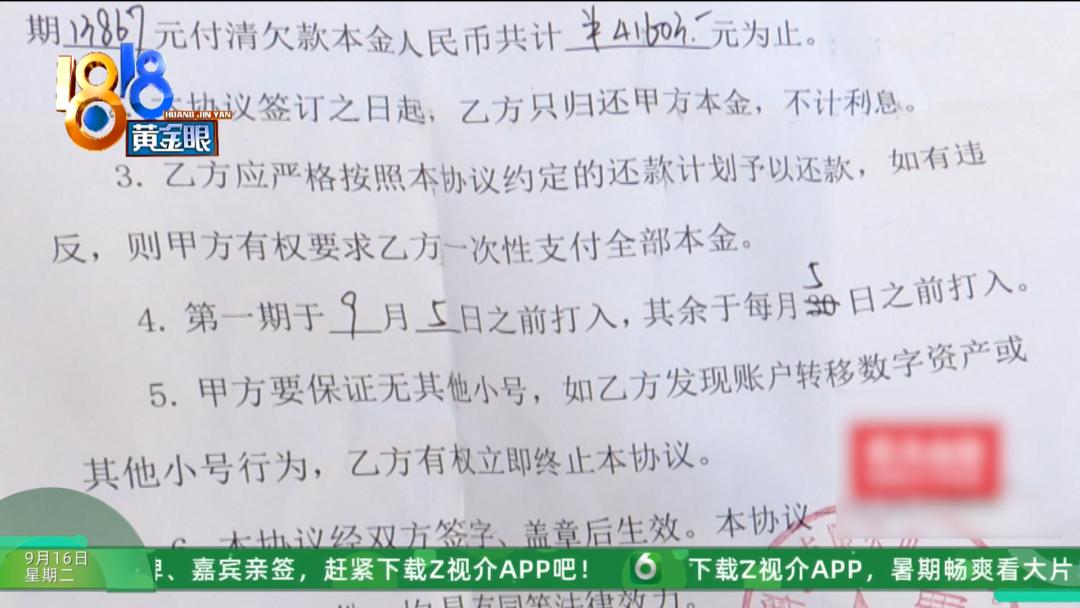 期13867元付清欠款本金人民币共计¥41603.元为止。
1818
HUANG JIN YAN
黄金眼
协议签订之日起，乙方只归还甲方本金，不计利息。
3. 乙方应严格按照本协议约定的还款计划予以还款，如有违
反，则甲方有权要求乙方一次性支付全部本金。
5
4. 第一期于9月5日之前打入，其余于每月30日之前打入。
5. 甲方要保证无其他小号，如乙方发现账户转移数字资产或
其他小号行为，乙方有权立即终止本协议。
6. 本协议经双方签字、盖章后生效。本协议
9月16日
星期二
、嘉宾亲签，赶紧下载Z视介APP吧！
6 下载Z视介APP，暑期畅爽看大片
具有同等法律效力。